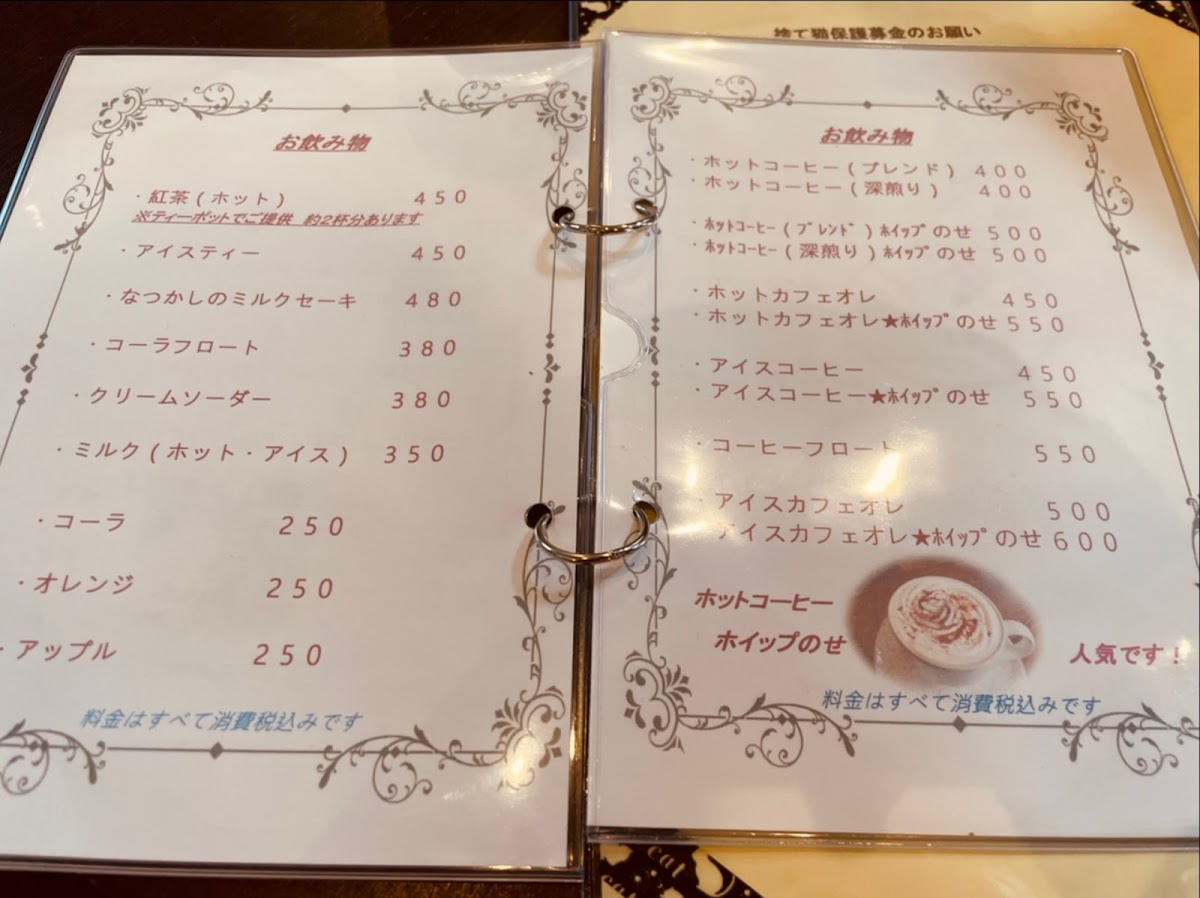 捨て猫保護募金のお願い
お飲み物
・紅茶(ホット) 450
※ティーポットでご提供 約2杯分あります
・アイスティー 450
・なつかしのミルクセーキ 480
・コーラフロート 380
・クリームソーダー 380
・ミルク(ホット・アイス) 350
・コーラ 250
・オレンジ 250
・アップル 250
料金はすべて消費税込みです
お飲み物
・ホットコーヒー(ブレンド) 400
・ホットコーヒー(深煎り) 400
・ホットコーヒー(ブレンド)ホイップのせ 500
・ホットコーヒー(深煎り)ホイップのせ 500
・ホットカフェオレ 450
・ホットカフェオレ★ホイップのせ 550
・アイスコーヒー 450
・アイスコーヒー★ホイップのせ 550
・コーヒーフロート 550
・アイスカフェオレ 500
アイスカフェオレ★ホイップのせ 600
ホットコーヒー
ホイップのせ
人気です!
料金はすべて消費税込みです
cat